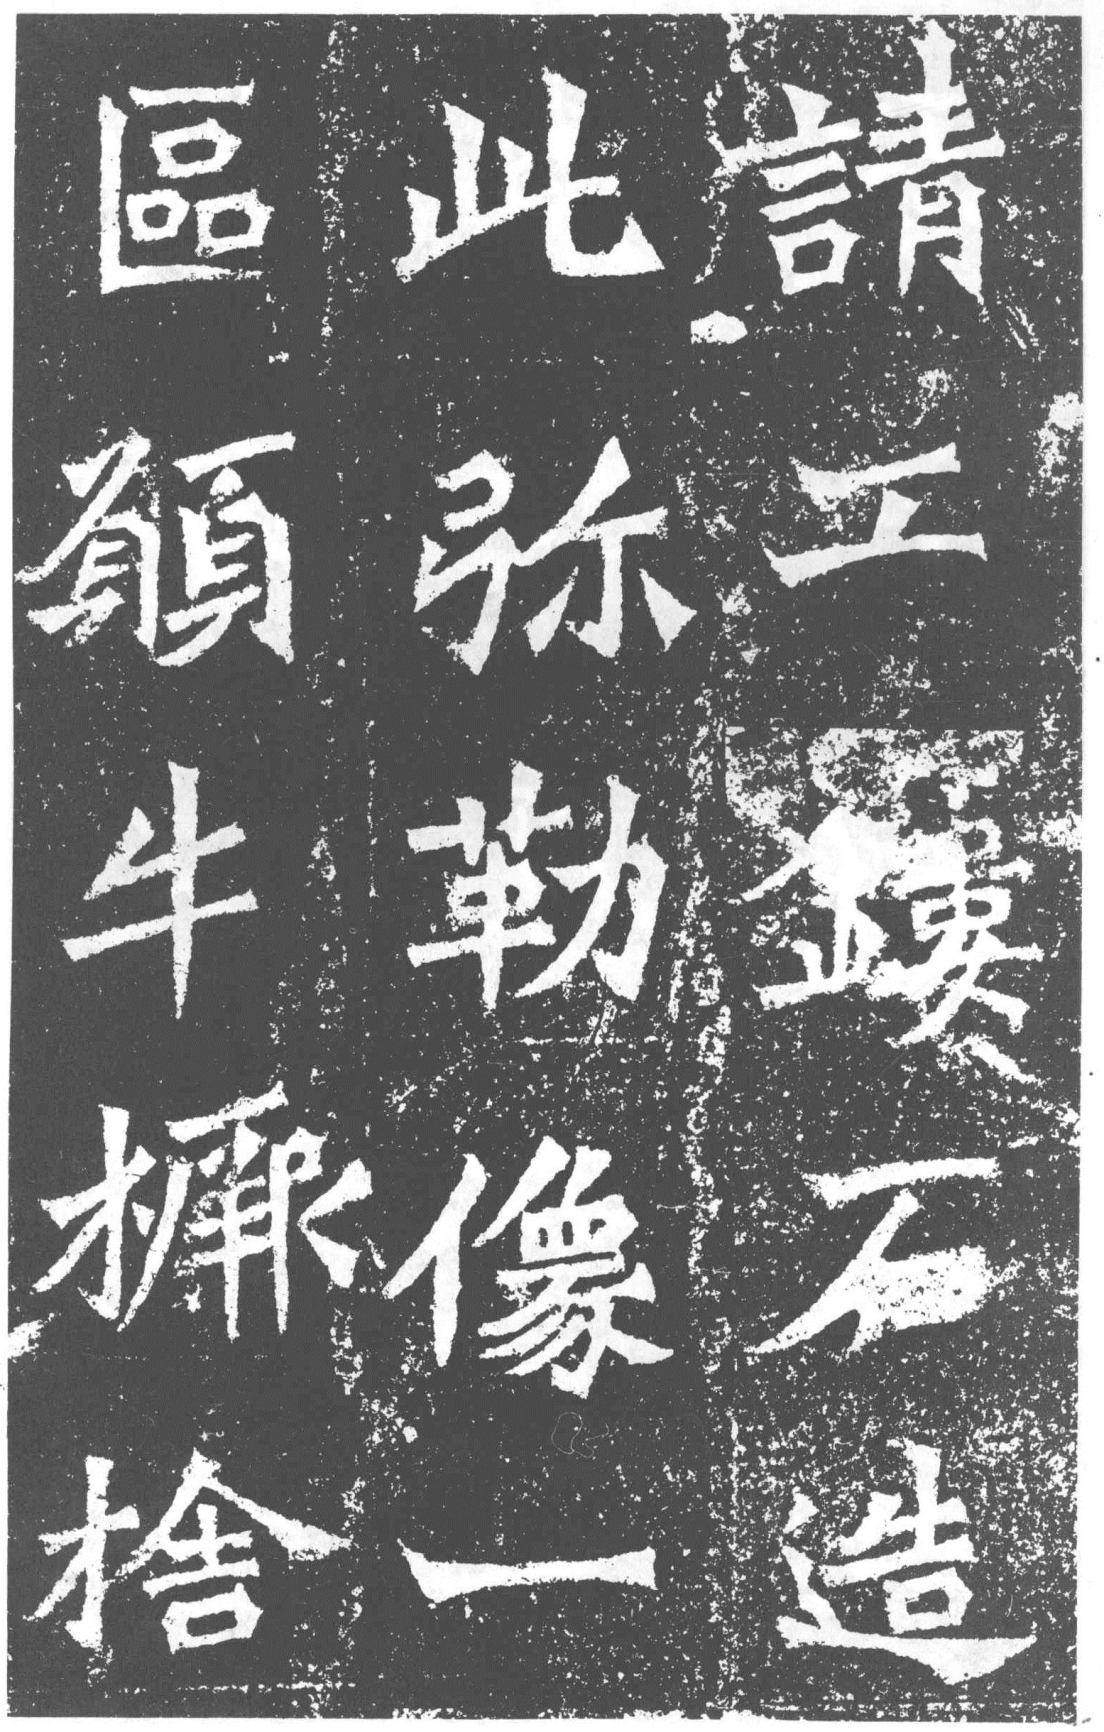 請工鏤石造
此弥勒像一
區願牛橛捨